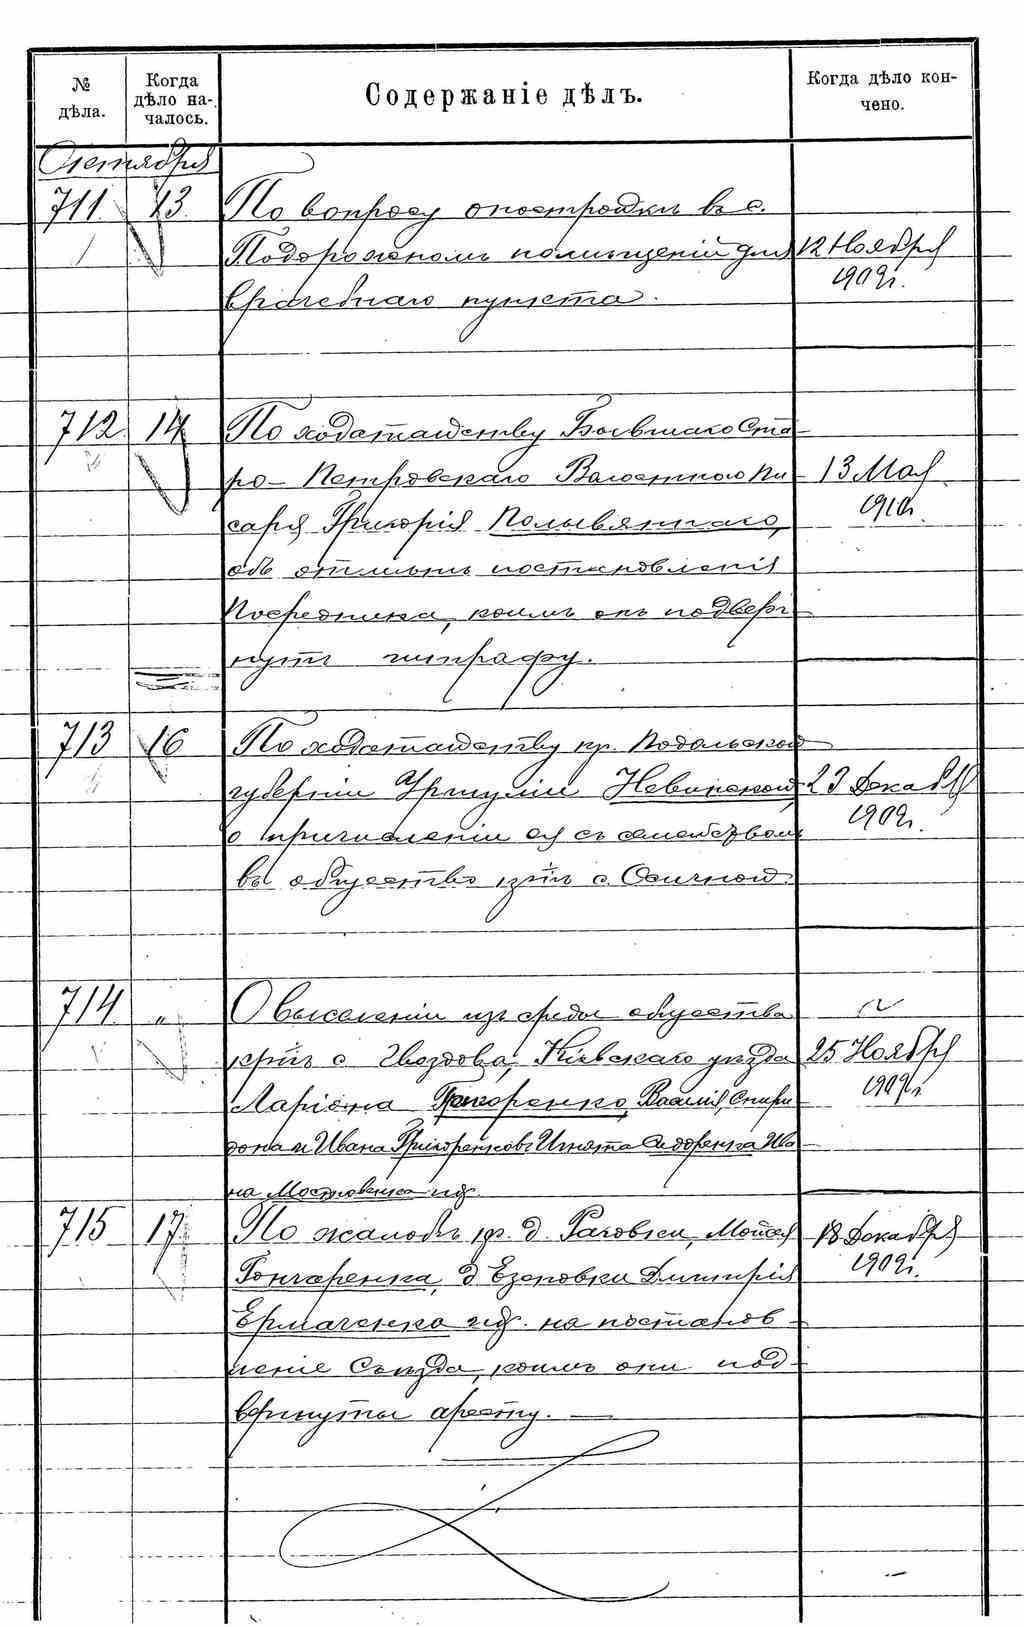 № дѣла.
Когда дѣло началось.
Содержаніе дѣлъ.
Когда дѣло кончено.
Октября
711 13 По вопросу о постройкѣ въ с.
Подорожномъ помѣщеній для 12 Ноября
врачебнаго пункта. 1909г.
712 14 По ходатайству Бывшаго Ста-
ро-Петровскаго Волостного Пи- 13 Мая
саря Григорія Полывяннаго, 1910г.
объ отмѣнѣ постановленія
Посредника, коимъ онъ подверг-
нутъ штрафу.
713 16 По ходатайству кр. Подольской
губерніи Уршуліи Невинской, 23 Декабря
о причисленіи ея съ семействомъ 1909г.
въ общество кр-нъ с. Осичной
714 " О выселеніи изъ среды общества
кр-нъ с. Гвоздова, Кіевскаго уѣзда 25 Ноября
Ларіона Григоренко, Василія, Спири- 1909г.
дона и Ивана Григоренковъ Игната Сидоренка Ива
на Московенка и др.
715 17 По жалобѣ кр. д. Раковки, Мойсея 18 Декабря
Гончаренка, д. Езеповки Димитрія 1909г.
Ермаченко и др. на постанов-
леніе Съѣзда, коимъ они под-
вергнуты аресту. —